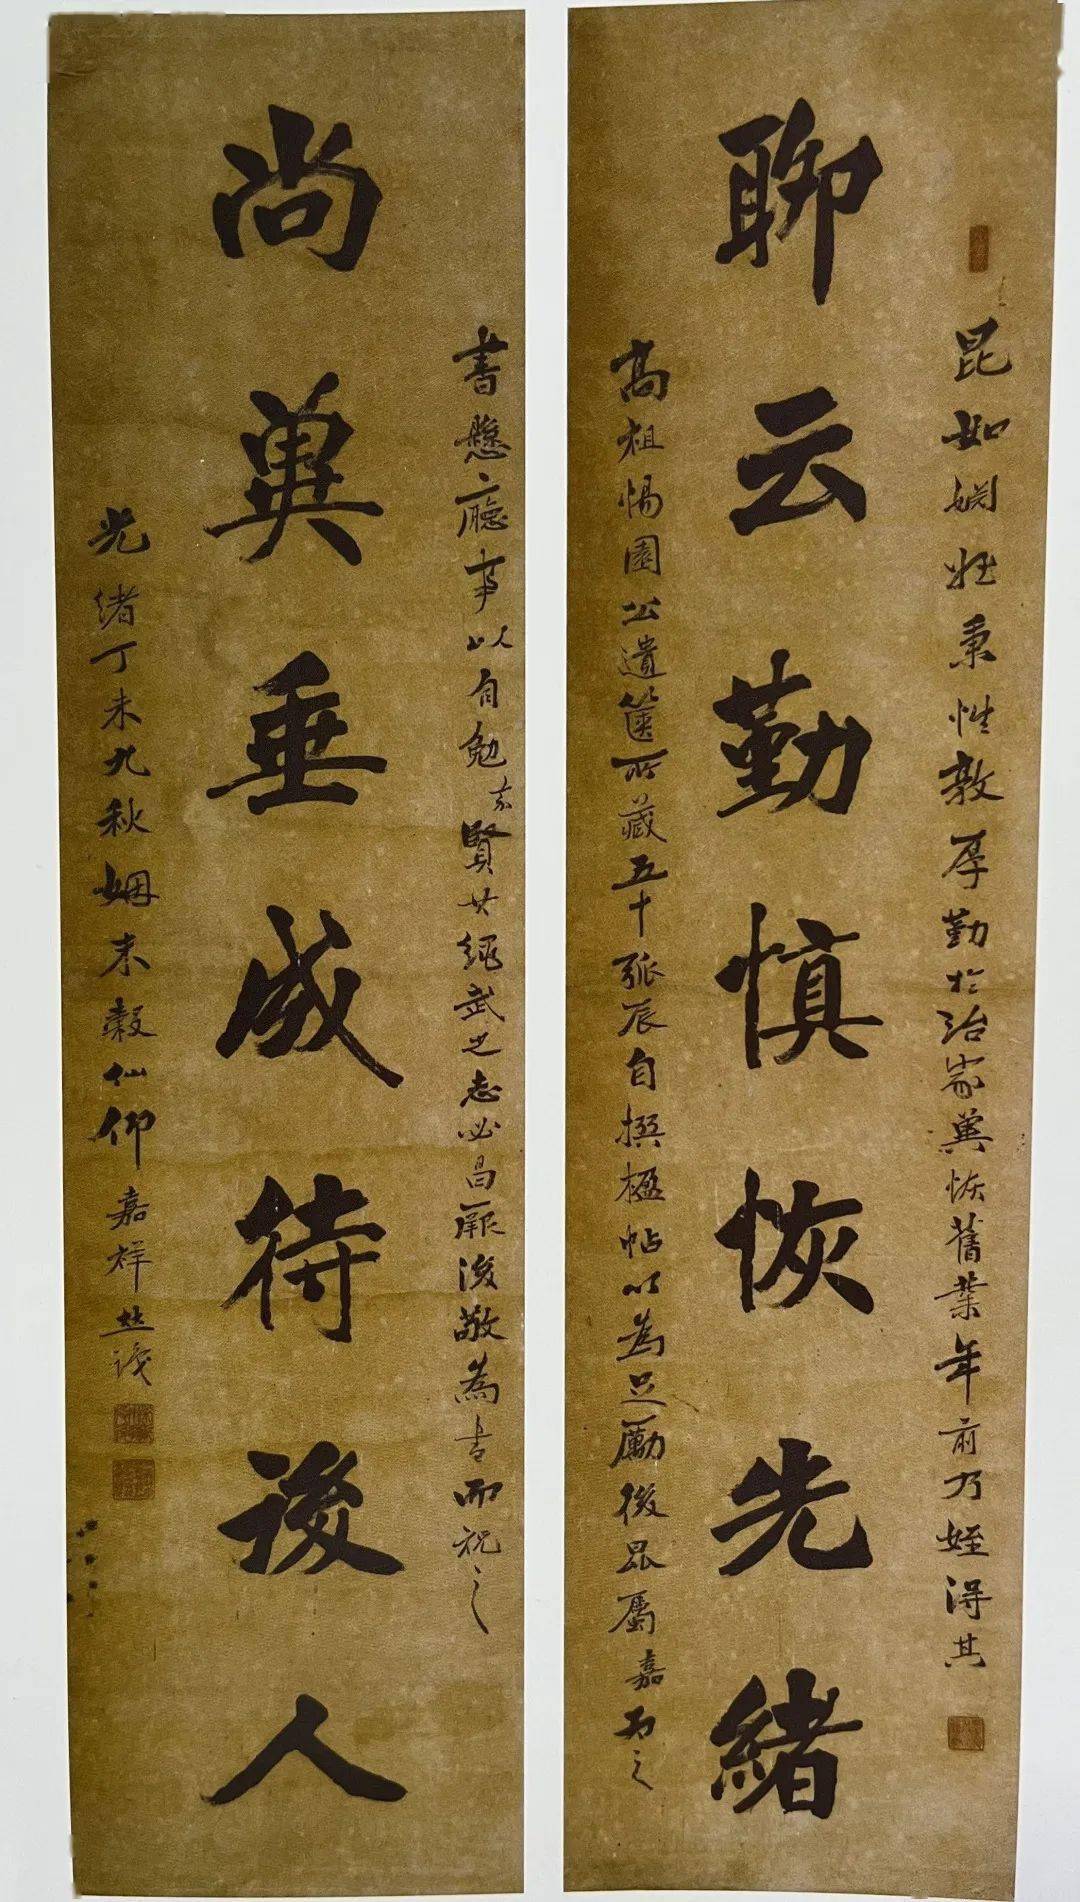 昆如姻姪秉性敦厚勤於治家冀恢舊業年前乃姪得其
聊云勤慎恢先緒
高祖惕園公遺箧所藏五十弧辰自撰楹帖以為足勵後昆屬嘉為之
書懸廳事以自勉玄賢廿繩武之志必昌厥後敬為書而祝之
尚冀垂成待後人
光緒丁未九秋姻末穀仙仰嘉祥並識